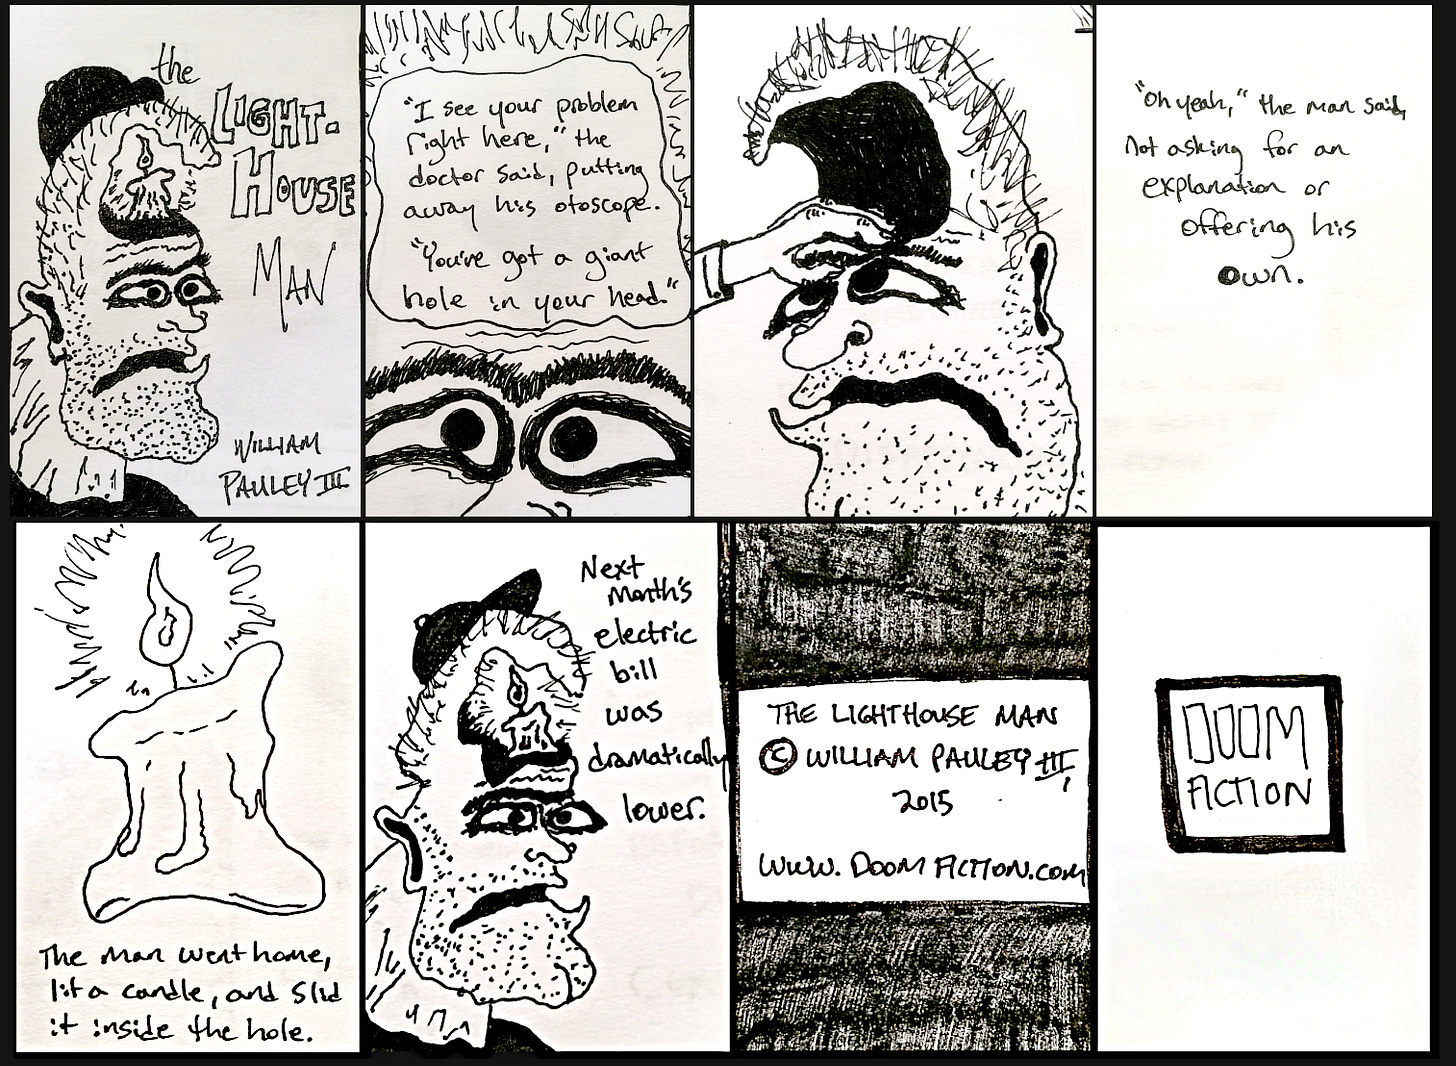 the
LIGHT-
HOUSE
MAN
WILLIAM
PAULEY III
"I see your problem
right here," the
doctor said, putting
away his otoscope.
"You've got a giant
hole in your head."
"Oh yeah," the man said,
Not asking for an
explanation or
offering his
own.
The man went home,
lit a candle, and slid
it inside the hole.
Next
Month's
electric
bill
was
dramatically
lower.
THE LIGHTHOUSE MAN
© WILLIAM PAULEY III,
2015
WWW.DOOMFICTION.COM
DOOM
FICTION